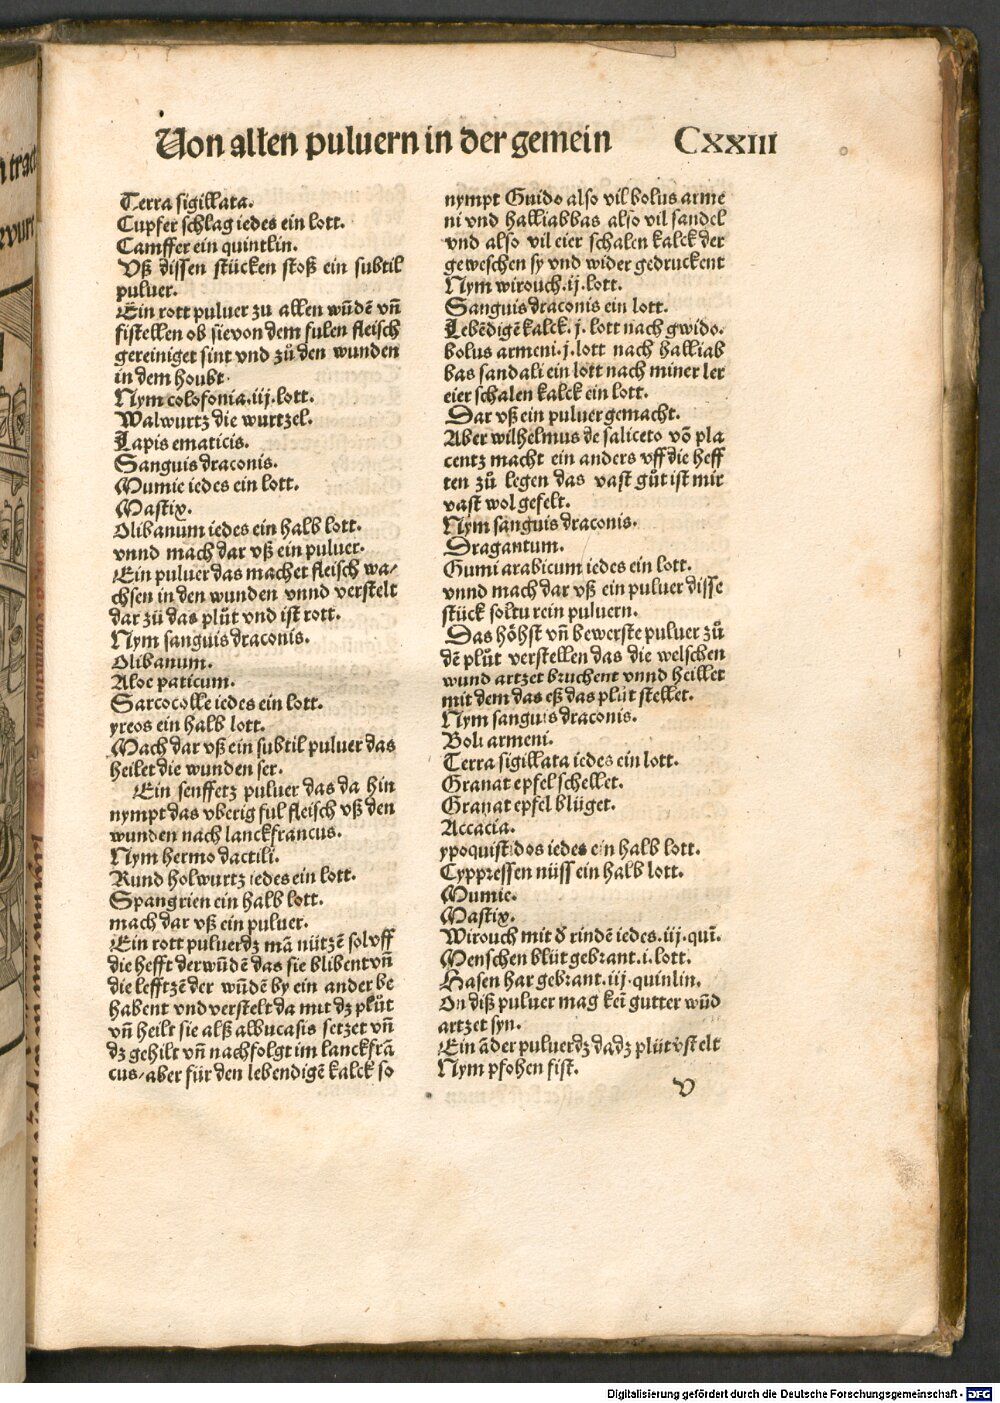 Von allen puluern in der gemein CXXIII
Terra sigillata.
Cupfer schlag iedes ein lott.
Camffer ein quintlin.
Vß dissen stücken stoß ein subtil
puluer.
Ein rott puluer zu allen wūdē vn̄
fistellen ob sie von dem fulen fleisch
gereiniget sint vnd zů den wunden
in dem houbt.
Nym colofonia.iij.lott.
Walwurtz die wurtzel.
Lapis ematicis.
Sanguis draconis.
Mumie iedes ein lott.
Mastix.
Olibanum iedes ein halb lott.
vnnd mach dar vß ein puluer.
Ein puluer das machet fleisch wa/
chsen in den wunden vnnd verstelt
dar zů das plůt vnd ist rott.
Nym sanguis draconis.
Olibanum.
Aloe paticum.
Sarcocolle iedes ein lott.
yreos ein halb lott.
Mach dar vß ein subtil puluer das
heilet die wunden ser.
Ein senfftez puluer das da hin
nympt das vberig ful fleisch vß den
wunden nach lanckfrancus.
Nym hermodactili.
Rund holwurtz iedes ein lott.
Spangrien ein halb lott.
mach dar vß ein puluer.
Ein rott puluer dz mā nützē sol vff
die hefft der wūdē das sie blibent vn̄
die lefftzē der wūdē by ein ander be
habent vnd verstelt da mit dz plůt
vn̄ heilt sie alß albucasis setzet vn̄
dz gehilt vn̄ nachfolgt im lanckfrā
cus/aber für den lebendigē kalck so
nympt Guido also vil bolus arme
ni vnd halliabbas also vil sandel
vnd also vil eier schalen kalck der
geweschen sy vnd wider gedruckent
Nym wirouch.ij.lott.
Sanguis draconis ein lott.
Lebēdigē kalck.j.lott nach gwido.
bolus armeni.j.lott nach halliab
bas sandali ein lott nach miner ler
eier schalen kalck ein lott.
Dar vß ein puluer gemacht.
Aber wilhelmus de saliceto vō pla
centz macht ein anders vff die heff
ten zů legen das vast gůt ist mir
vast wol gefelt.
Nym sanguis draconis.
Dragantum.
Gumi arabicum iedes ein lott.
vnnd mach dar vß ein puluer disse
stück soltu rein puluern.
Das höhst vn̄ bewerste puluer zů
dē plůt verstellen das die welschen
wund artzet bruchent vnnd heillet
mit dem das eß das plůt stellet.
Nym sanguis draconis.
Boli armeni.
Terra sigillata iedes ein lott.
Granat epfel schellet.
Granat epfel blüget.
Accacia.
ypoquistidos iedes ein halb lott.
Cyppressen nüss ein halb lott.
Mumie.
Mastix.
Wirouch mit d̄ rindē iedes.iij.quī.
Menschen blůt gebrant.i.lott.
Hasen har gebrant.iij.quinlin.
On diß puluer mag kei᷑ gutter wūd
artzet syn.
Ein āder puluer dz da dz plůt vstelt
Nym pfohen fist.
V
Digitalisierung gefördert durch die Deutsche Forschungsgemeinschaft - DFG